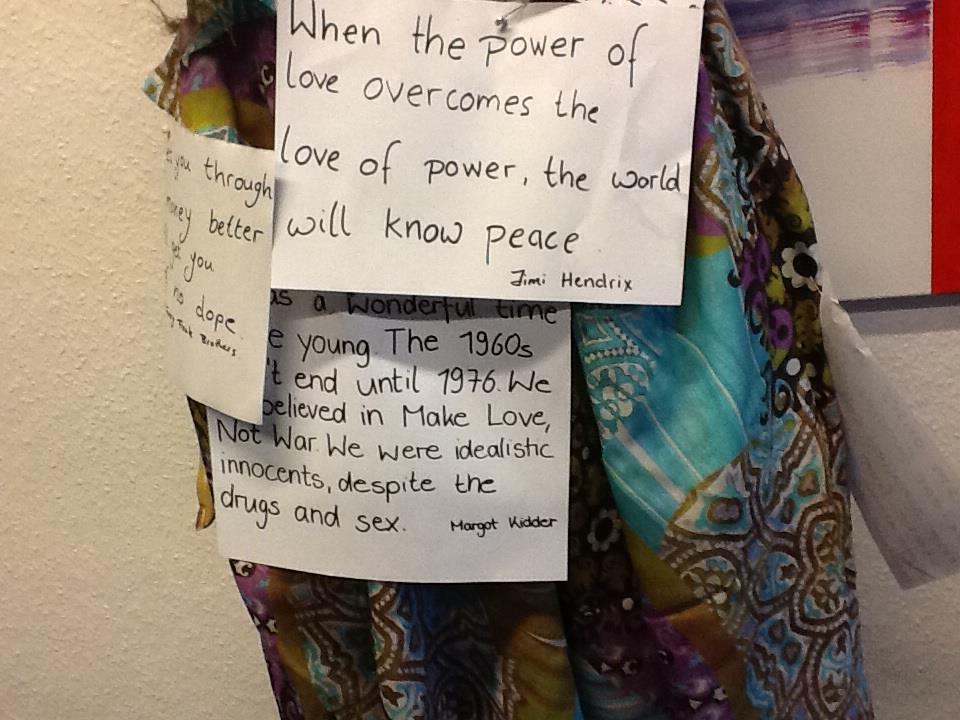 When the power of
love overcomes the
love of power, the world
will know peace
Jimi Hendrix
you through
money better
get you
no dope
Brothers
as a wonderful time
e young. The 1960s
't end until 1976. We
believed in Make Love,
Not War. We were idealistic
innocents, despite the
drugs and sex.
Margot Kidder